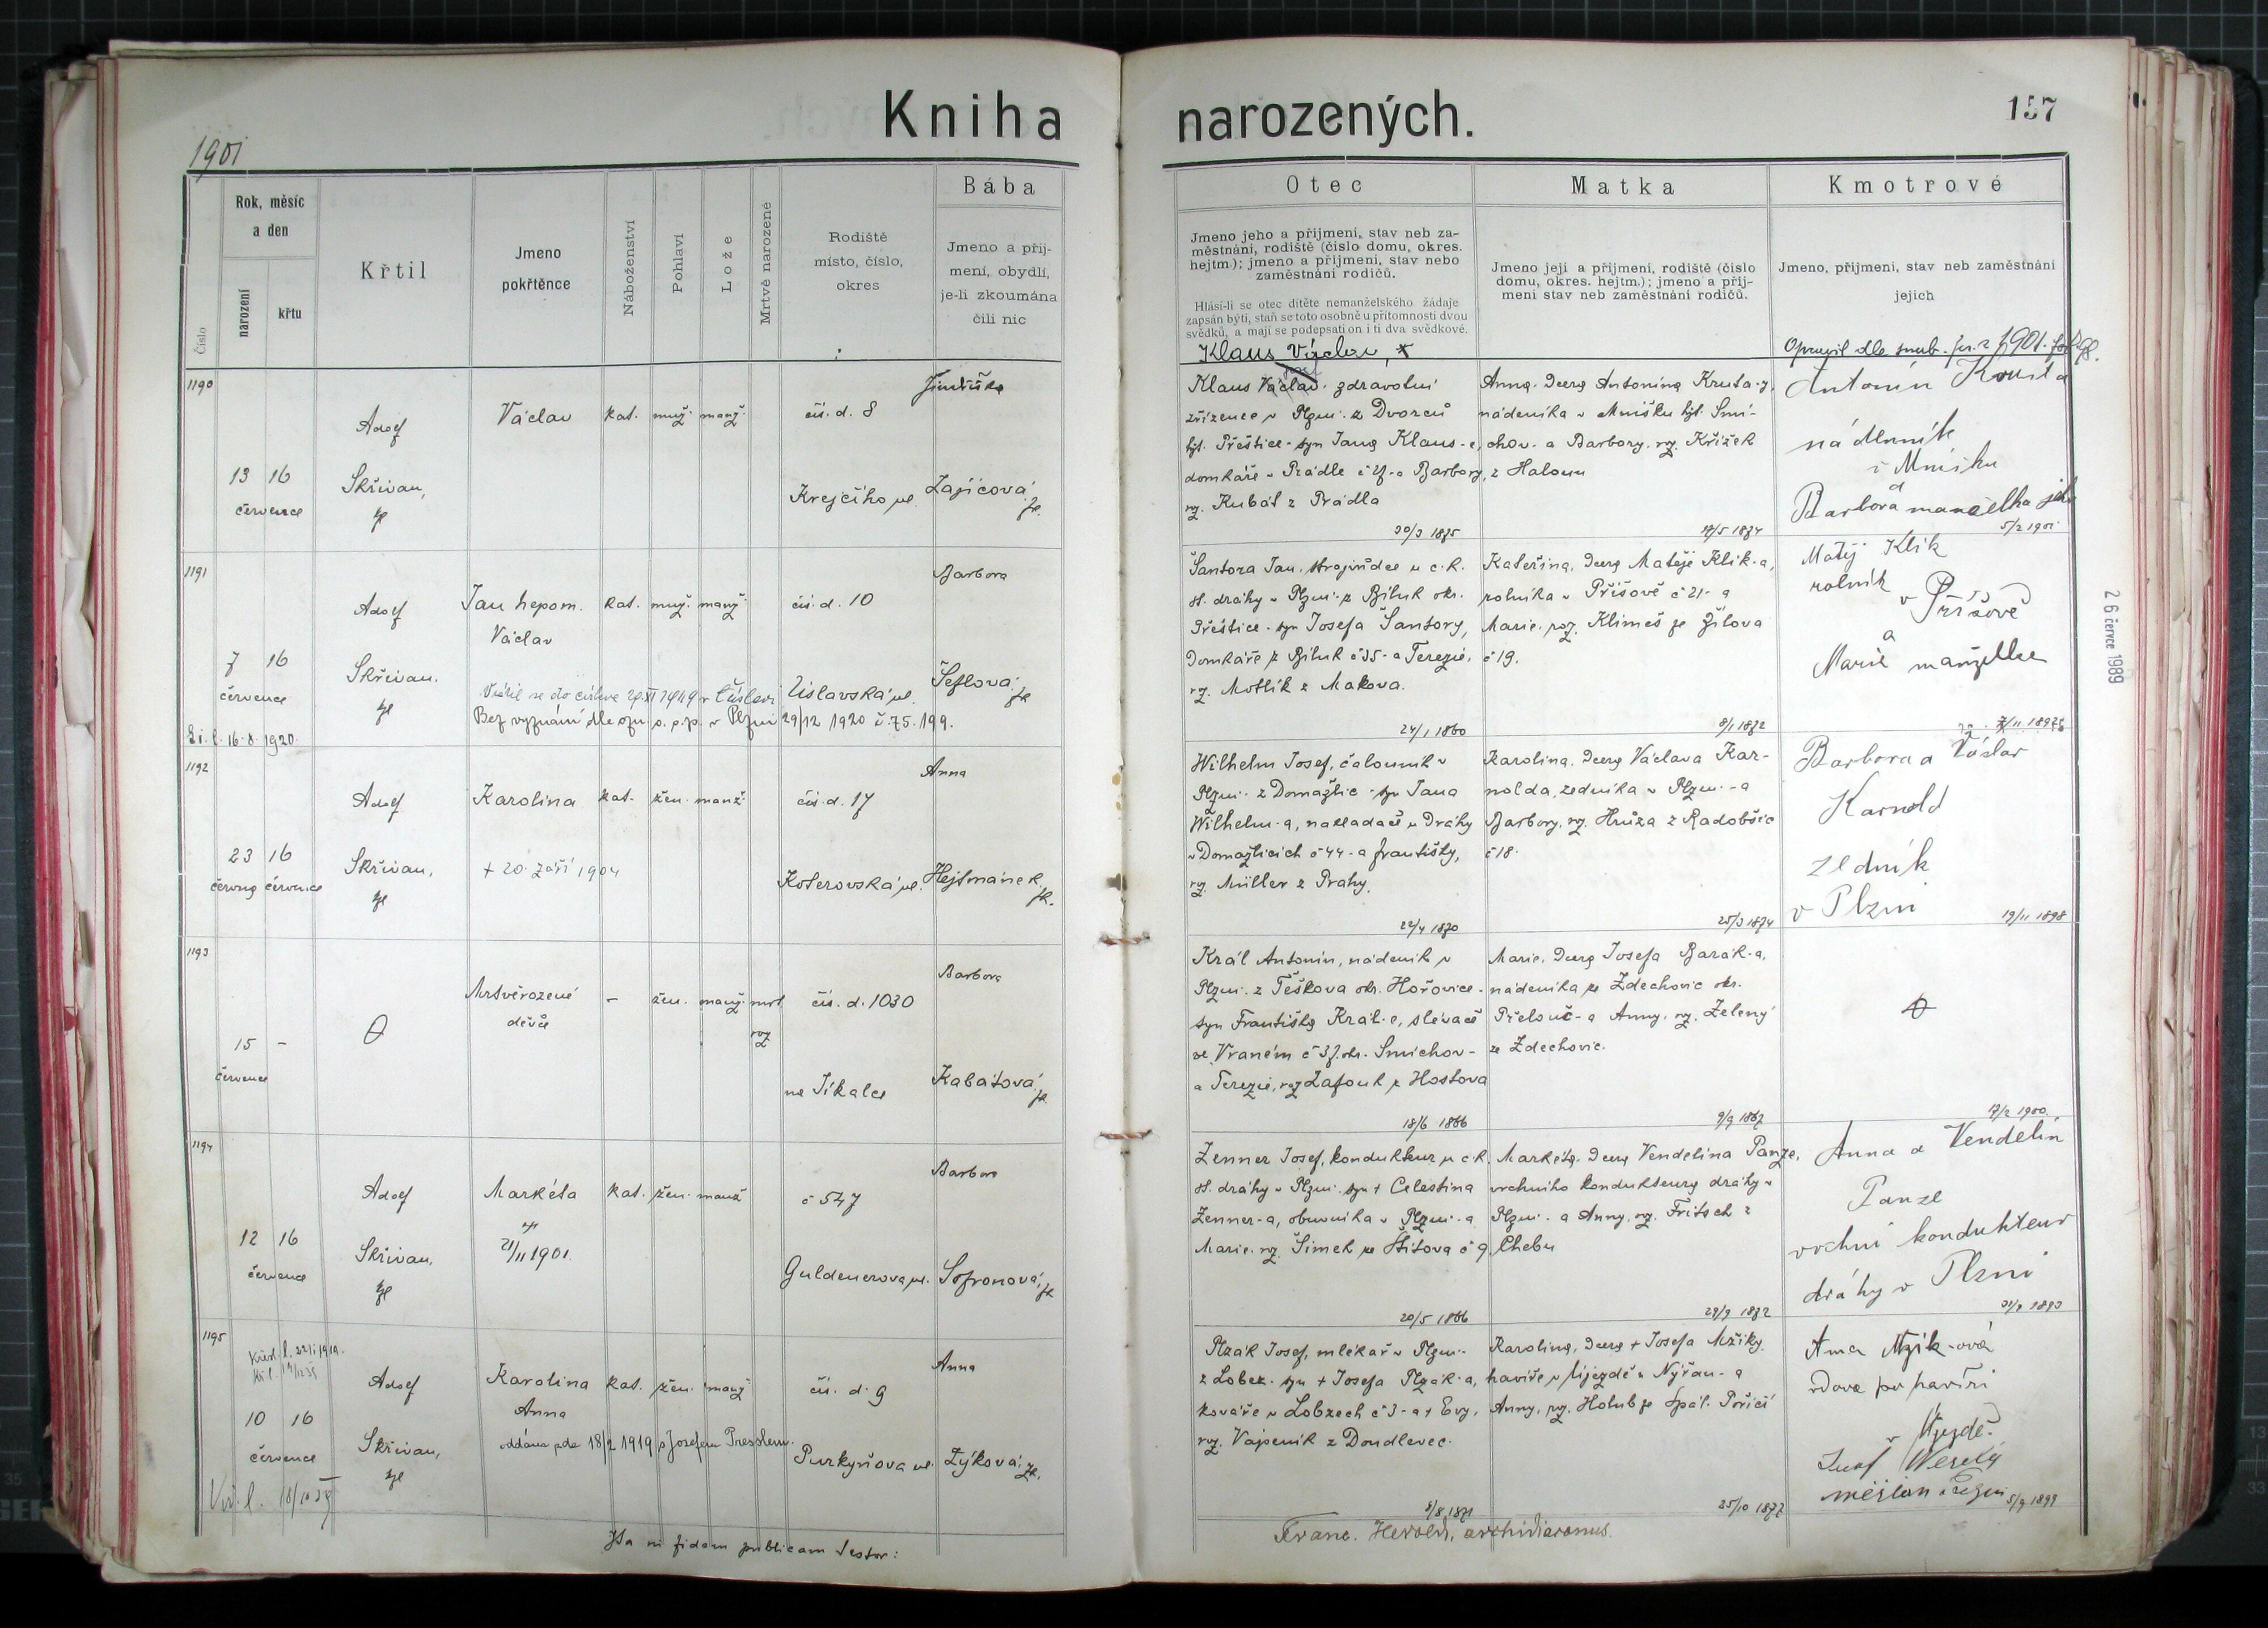 Kniha narozených.
157
1901
Číslo
Rok, měsíc
a den
narození
křtu
Křtil
Jmeno
pokřtěnce
Náboženství
Pohlaví
Lože
Mrtvě narozené
Rodiště
místo, číslo,
okres
Bába
Jmeno a příj-
mení, obydlí,
je-li zkoumána
čili nic
Otec
Jmeno jeho a příjmení, stav neb za-
městnání, rodiště (číslo domu, okres.
hejtm.); jmeno a příjmení, stav nebo
zaměstnání rodičů.
Hlásí-li se otec dítěte nemanželského žádaje
zapsán býti, staň se toto osobně u přítomnosti dvou
svědků, a mají se podepsati on i ti dva svědkové.
Matka
Jmeno její a příjmení, rodiště (číslo
domu, okres. hejtm.); jmeno a příj-
mení stav neb zaměstnání rodičů.
Kmotrové
Jmeno, příjmení, stav neb zaměstnání
jejich
Klaus Václav
1901
1190
13 16
července
Adolf
Skřivan,
Václav
kat. muž. manž.
čís. d. 8
Krejčího ul.
Zajícová
Klaus Václav zdravotní
zřízenec v Plzni z Dvorců
hjt. Přeštice - syn Jana Klaus-e,
domkáře v Prádle a Barbory,
roz. Kubát z Prádla
30/3 1875
Anna, dcera Antonína
nádeníka v Mníšku hjt. Smí-
chov - a Barbory, roz. Křížek
z Haloun
17/5 1874
Antonín
nádenník
v Mníšku
a
Barbora manželka
5/2 1901
1191
7 16
července
Adolf
Skřivan.
Jan Nepom.
Václav
kat. muž. manž.
čís. d. 10
Barbora
Šeflová
Bez vyznání dle v Plzni 29/12 1920 č. 75.199.
16. 8. 1920
Šantora Jan, strojvůdce u c. k.
st. dráhy v Plzni z Biluk okr.
Přeštice - syn Josefa Šantory,
domkáře z Biluk č 35 - a Terezie,
roz. Motlík z Makova.
24/1 1860
Kateřina, dcera Matěje Klik-a,
rolníka v Příšově č 21 - a
Marie, roz. Klimeš ze Žilova
č 19.
8/1 1872
Matěj Klik
rolník
v Příšově
a
Marie manželka
1192
23 16
června července
Adolf
Skřivan,
Karolina
† 20. září 1904
kat. žen. manž.
čís. d. 17
Koterovská ul.
Anna
Hejtmánek
Wilhelm Josef, čalouník v
Plzni z Domažlic - syn Jana
Wilhelm-a, nakladače u dráhy
v Domažlicích č 44 - a Františky,
roz. Müller z Prahy.
22/4 1870
Karolina, dcera Václava Kar-
nolda, zedníka v Plzni - a
Barbory, roz. Hrůza z Radobčic
č 18.
25/3 1874
Barbora a Václav
Karnold
zedník
v Plzni
19/11 1898
1193
15 -
července
Mrtvěrozené
děvče
- žen. manž. mrt.
roz
čís. d. 1030
na Jíkalce
Barbora
Kabátová
Král Antonín, nádeník v
Plzni z Těškova okr. Hořovice -
syn Františka Král-e, slévače
ve Vraném č 37. okr. Smíchov -
a Terezie, roz. Zafouk z Hostova
18/6 1866
Marie, dcera Josefa Barák-a,
nádeníka ze Zdechovic okr.
Přelouč - a Anny, roz. Zelený
ze Zdechovic.
9/9 1867
17/2 1900
1194
12 16
července
Adolf
Skřivan,
Markéta
21/11 1901.
kat. žen. manž
č 547
Guldenerova ul.
Barbora
Sofronová
Zenner Josef, kondukteur u c. k.
st. dráhy v Plzni, syn † Celestina
Zenner-a, obuvníka v Plzni - a
Marie, roz. Šimek ze Štítova č 9.
20/5 1866
Markéta, dcera Vendelína Panze,
vrchního kondukteura dráhy v
Plzni - a Anny, roz. Fritsch z
Chebu
29/9 1872
Anna a Vendelín
Panze
vrchní kondukteur
dráhy v Plzni
1195
10 16
července
Adolf
Skřivan,
Karolina
Anna
oddána zde 18/2 1919 s Josefem Presslem.
kat. žen. manž
čís. d. 9
Purkyňova ul.
Anna
Zýková
Plzák Josef, mlékař v Plzni
z Lobez - syn † Josefa Plzák-a,
kováře v Lobzech č 3 - a † Evy,
roz. Vápeník z Doudlevec.
8/8 1871
Karolina, dcera † Josefa Mžíky
havíře v Újezdě u Nýřan - a
Anny, roz. Holub ze Spál. Poříčí
25/10 1877
Anna Mžik-ová
vdova po havíři
v Újezdě
Josef Veselý
měšťan v Plzni
5/9 1899
Ita in fidem publicam testor:
Franc. Herold, archidiaconus.
26 červce 1989